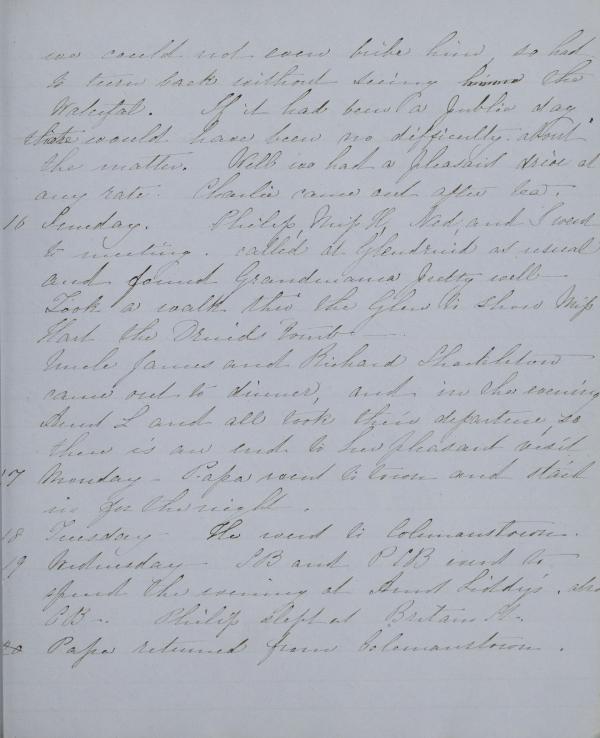 we could not even bribe him, so had
to turn back without seeing the
Waterfal. If it had been a Public day
there would have been no difficulty about
the matter. Well we had a pleasant drive at
any rate. Charlie came out after tea.
16 Sunday. Philip, Miss H, Ned, and I went
to meeting. called at Glendruid as usual
and found Grandmama pretty well
Took a walk thro the Glen to show Miss
Hart the Druids Tomb —
Uncle James and Richard Shackleton
came out to dinner, and in the evening
Aunt L and all took their departure, so
there is an end to her pleasant visit
17 Monday - Papa went to town and staid
in for the night.
18 Tuesday He went to Colemanstown.
19 Wednesday - SB and PCB went to
spend the evening at Aunt Liddy's. also
CB -. Philip slept at Britain St.
20 Papa returned from Colemanstown.